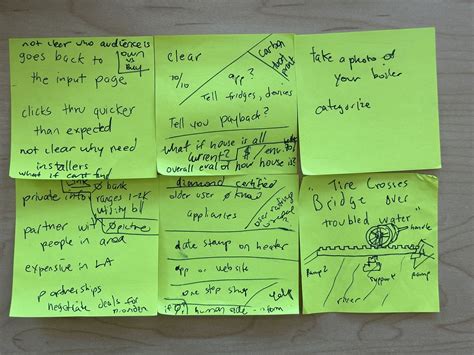 not clear who audience is
goes back to own vs Buy
the input page
clicks thru quicker
than expected
not clear why need
installers
clear
10/10
Carbon foot print
app?
Tell fridges, devices
Tell you payback?
what if house is all
current? $
overall eval of how house is?
take a photo of
your boiler
categorize
what if can't
private info
bank
ranges 1-2k
utility bill
partner with picture
people in area
expensive in LA
partnerships
negotiate deals for
diamond certified
older user
appliances
user ratings
date stamp on heater
app or website
one stop shop
Yelp
human side
"Tire Crosses
Bridge over
troubled water"
handle
Ramp
support
ramp
river